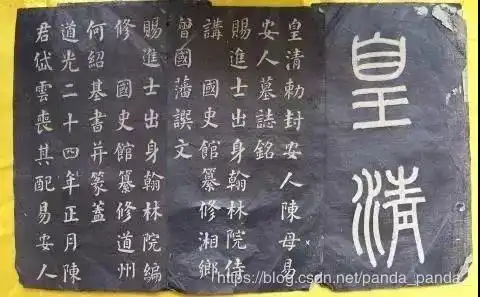 皇清
皇清勅封安人陳母易
安人墓誌銘
賜進士出身翰林院侍
講　國史館纂修湘鄉
曾國藩譔文
賜進士出身翰林院編
修　國史館纂修道州
何紹基書并篆蓋
道光二十四年正月陳
君岱雲喪其配易安人
https://blog.csdn.net/panda_panda